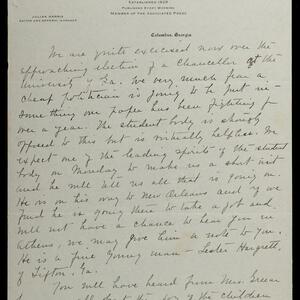 JULIAN HARRIS
EDITOR AND GENERAL MANAGER
ESTABLISHED 1828
PUBLISHED EVERY MORNING
MEMBER OF THE ASSOCIATED PRESS
Columbus, Georgia
We are quite exercised now over the
approaching election of a Chancellor of the
University of Ga. We very much fear a
cheap politician is going to be put in –
Something our paper has been fighting for
over a year. The student body is strongly
opposed to this but is virtually helpless. We
expect one of the leading spirits of the student
body on Monday to make us a short visit
and he will tell us all that is going on.
He is on his way to New Orleans and if we
find he is going there to take a job and
will not have a chance to hear you in
Athens, we may give him a note to you.
He is a fine young man – Lester Hargrett
of Tifton, Ga.
You will have heard from Mrs. Greear
all about the joy of the children